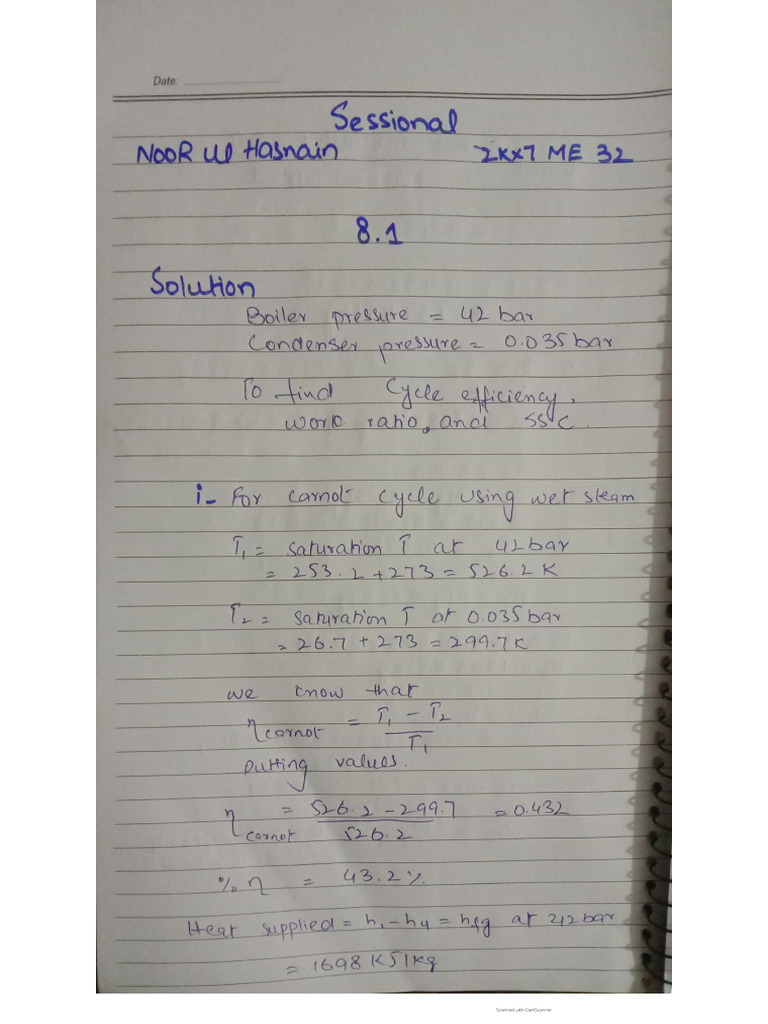 Date:
Sessional
NOOR Ul Hasnain 2Kx7 ME 32
8.1
Solution
Boiler pressure = 42 bar
Condenser pressure = 0.035 bar
To find Cycle efficiency,
work ratio, and SSC.
i- For carnot cycle using wet steam
T₁ = saturation T at 42bar
= 253.2 + 273 = 526.2 K
T₂ = saturation T at 0.035 bar
= 26.7 + 273 = 299.7 K
we know that
η carnot = T₁ - T₂ / T₁
putting values.
η carnot = 526.2 - 299.7 / 526.2 = 0.432
% η = 43.2 %
Heat supplied = h₁ - h₄ = hfg at 42 bar
= 1698 KJ/kg
Scanned with CamScanner